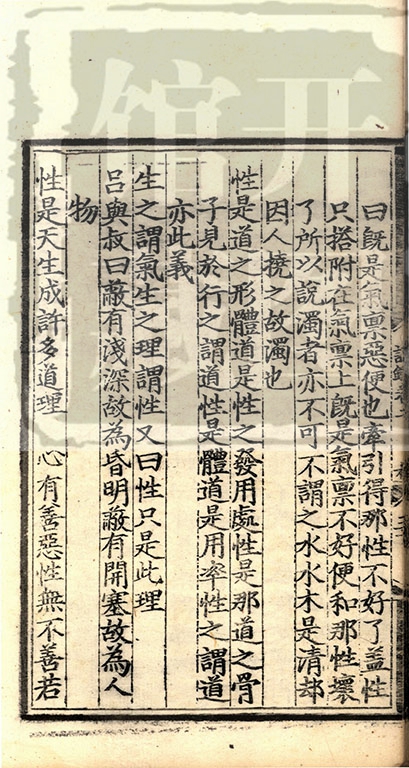 曰既是氣禀惡便也牽引得那性不好了盖性
只搭附在氣禀上既是氣禀不好便和那性壞
了所以說濁者亦不可不謂之水水木是清却
因人撓之故濁也
性是道之形體道是性之發用處性是那道之骨
子見於行之謂道性是體道是用率性之謂道
亦此義
生之謂氣生之理謂性又曰性只是此理
呂與叔曰蔽有淺深故為昏明蔽有開塞故為人
物
性是天生成許多道理 心有善惡性無不善若